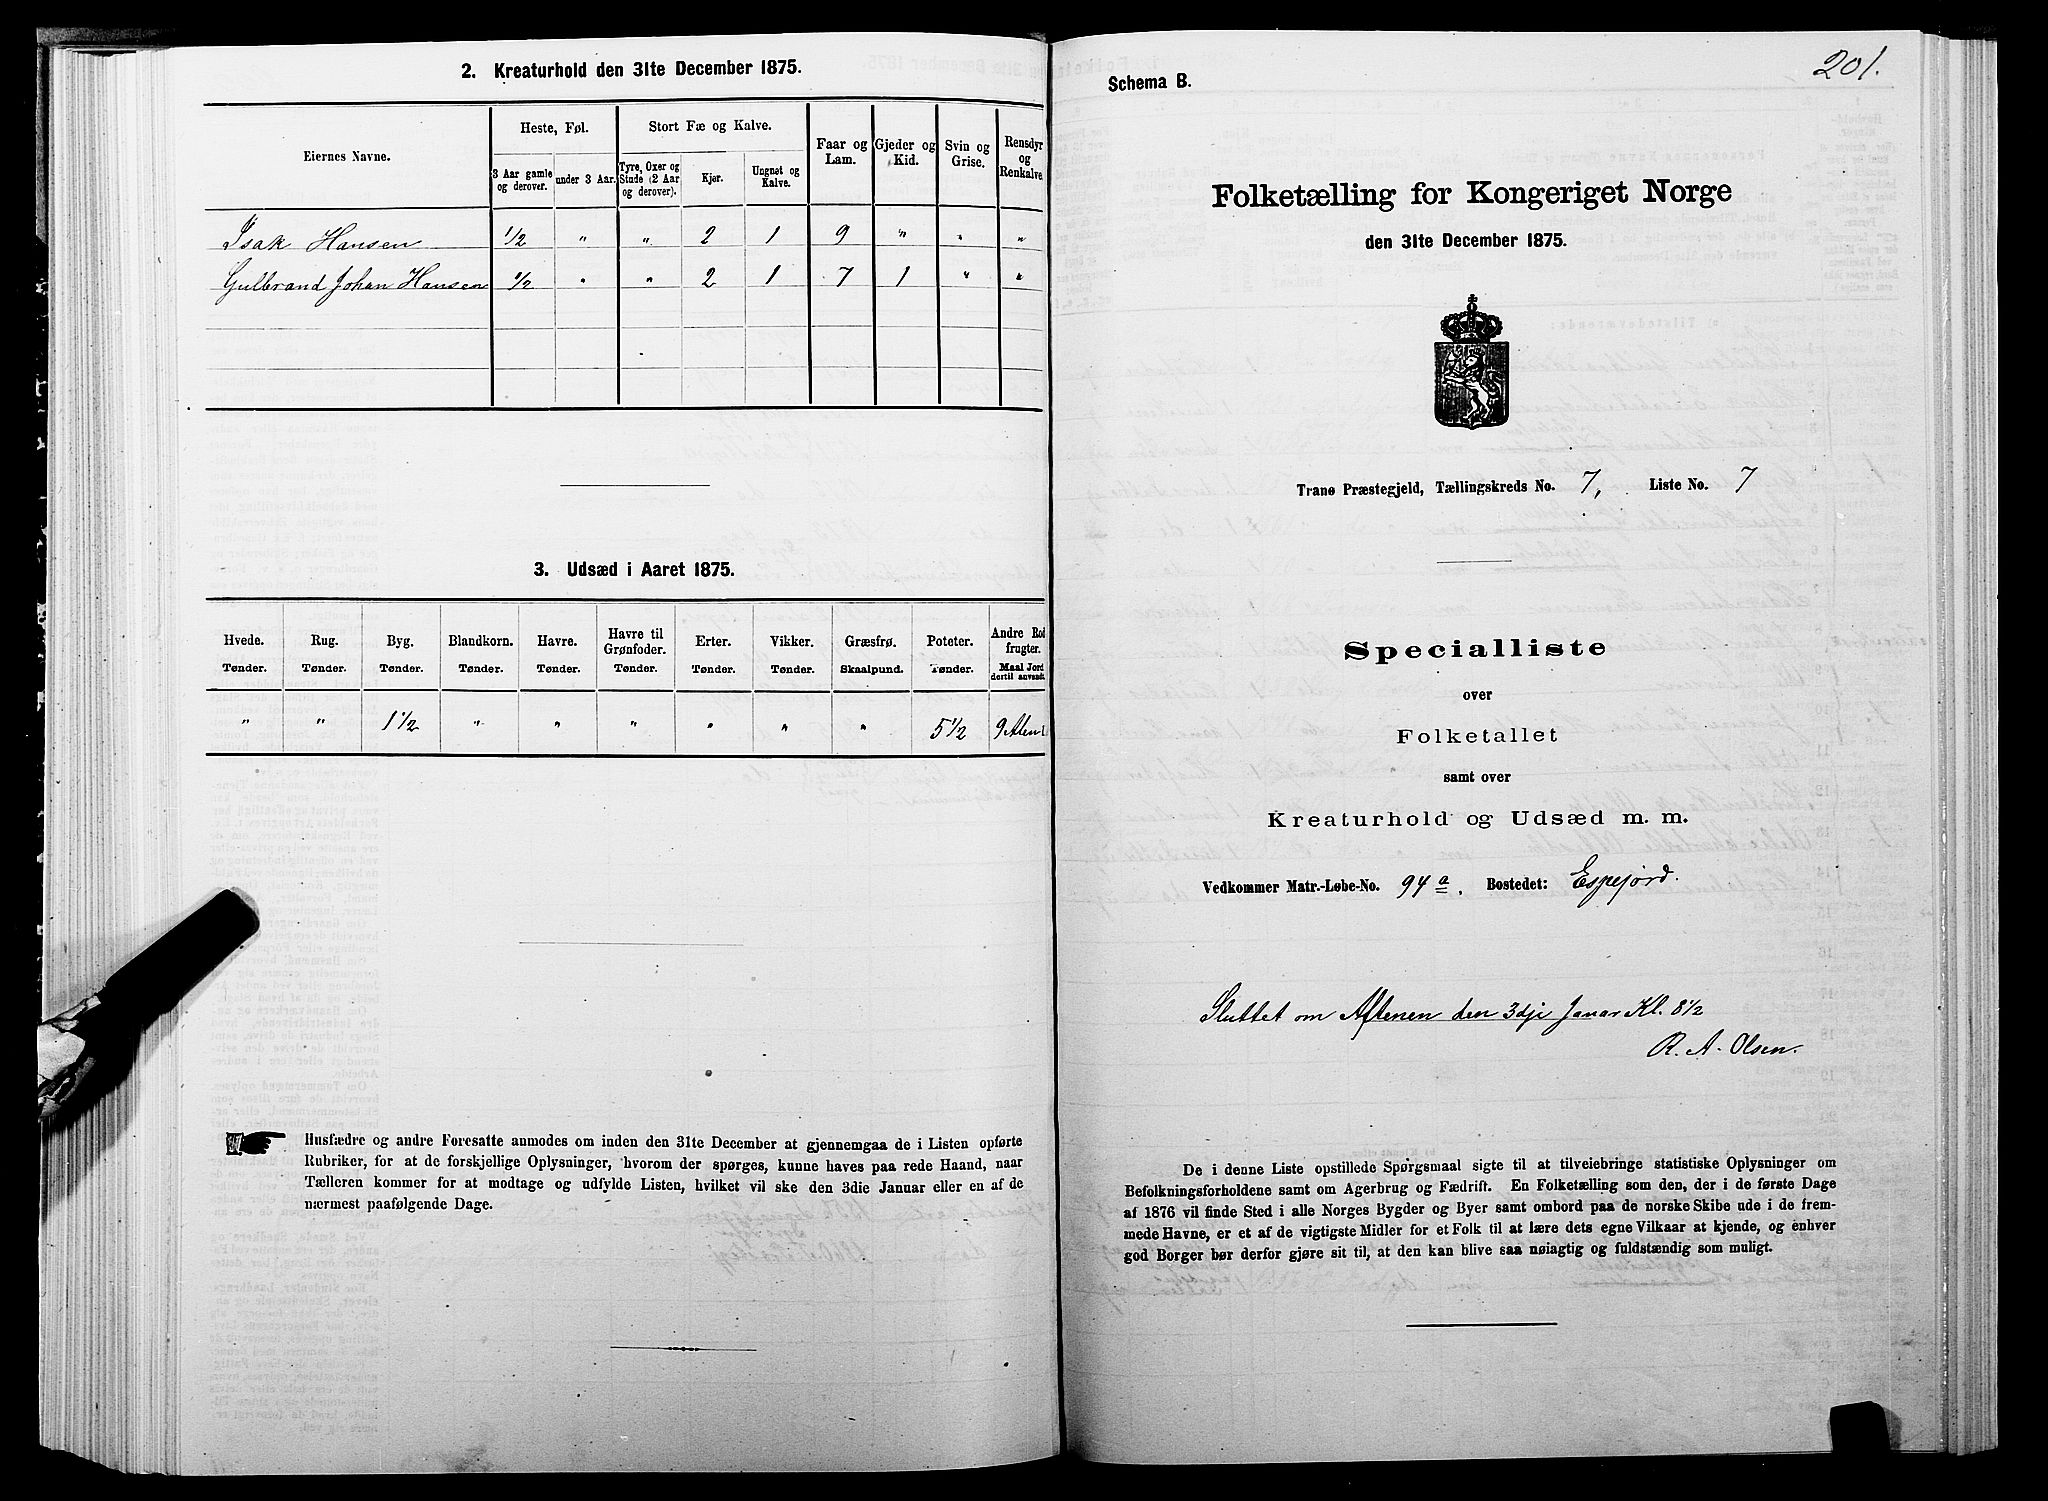 2. Kreaturhold den 31te December 1875.
Eiernes Navne.
Heste, Føl.
Stort Fæ og Kalve.
Faar og Lam.
Gjeder og Kid.
Svin og Grise.
Rensdyr og Renkalve.
3 Aar gamle og derover.
under 3 Aar.
Tyre, Oxer og Stude (2 Aar og derover).
Kjør.
Ungnøt og Kalve.
Isak Hansen 1/2 " " 2 1 9 " " "
Gulbrand Johan Hansen 1/2 " " 2 1 7 1 " "
3. Udsæd i Aaret 1875.
Hvede. Rug. Byg. Blandkorn. Havre. Havre til Grønfoder. Erter. Vikker. Græsfrø. Poteter. Andre Rodfrugter.
Tønder. Tønder. Tønder. Tønder. Tønder. Tønder. Tønder. Tønder. Skaalpund. Tønder. Maal Jord dertil anvendt.
" " 1 1/2 " " " " " " 5 1/2 9 Alen
Husfædre og andre Foresatte anmodes om inden den 31te December at gjennemgaa de i Listen opførte
Rubriker, for at de forskjellige Oplysninger, hvorom der spørges, kunne haves paa rede Haand, naar
Tælleren kommer for at modtage og udfylde Listen, hvilket vil ske den 3die Januar eller en af de
nærmest paafølgende Dage.
201.
Schema B.
Folketælling for Kongeriget Norge
den 31te December 1875.
Tranø Præstegjeld, Tællingskreds No. 7, Liste No. 7
Specialliste
over
Folketallet
samt over
Kreaturhold og Udsæd m. m.
Vedkommer Matr.-Løbe-No. 94 a. Bostedet: Espejord.
Sluttet om Aftenen den 3dji Janar Kl. 8 1/2
R. A. Olsen.
De i denne Liste opstillede Spørgsmaal sigte til at tilveiebringe statistiske Oplysninger om
Befolkningsforholdene samt om Agerbrug og Fædrift. En Folketælling som den, der i de første Dage
af 1876 vil finde Sted i alle Norges Bygder og Byer samt ombord paa de norske Skibe ude i de frem-
mede Havne, er et af de vigtigste Midler for et Folk til at lære dets egne Vilkaar at kjende, og enhver
god Borger bør derfor gjøre sit til, at den kan blive saa nøiagtig og fuldstændig som muligt.